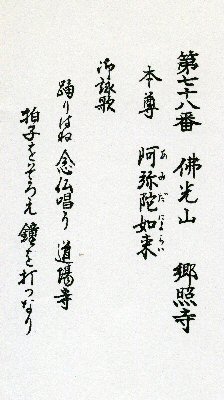 第七十八番　佛光山　郷照寺
本尊　阿弥陀如来
あみだにょらい
御詠歌
踊りはね念仏唱う道場寺
拍子をそろえ鐘を打つなり